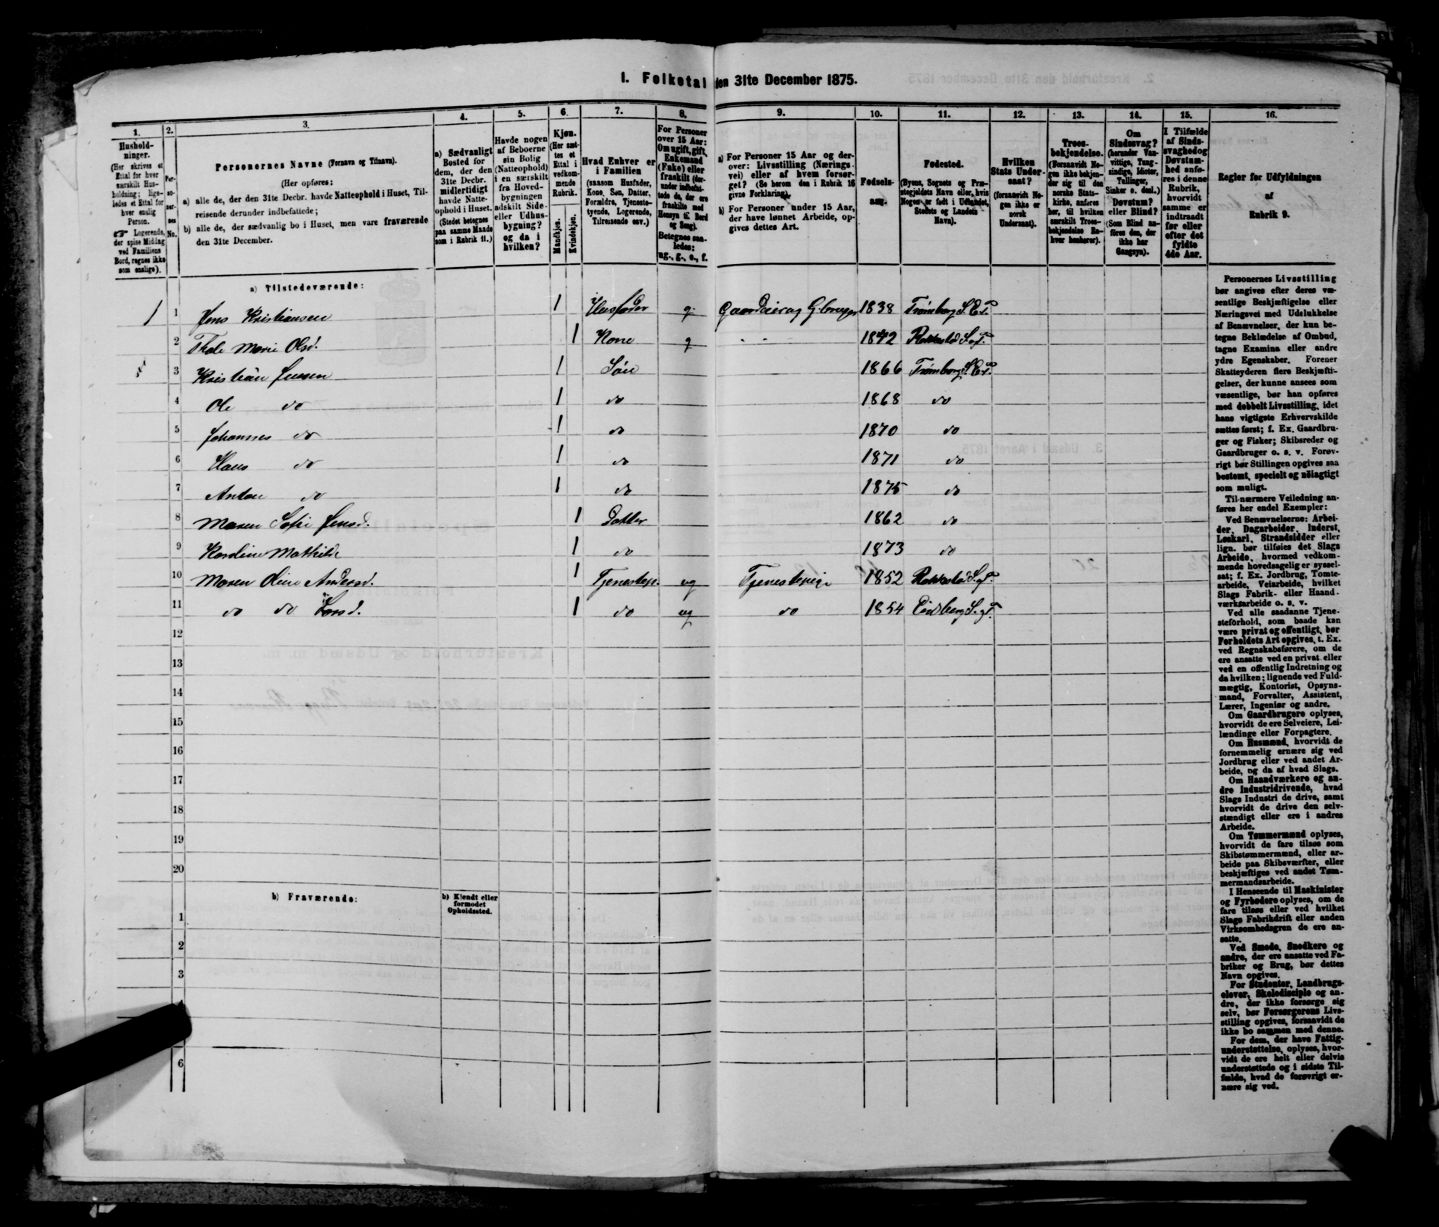 I. Folketal den 31te December 1875.
1.
Hushold-
ninger.
(Her skrives et
Ettal for hver
særskilt Hus-
holdning; lige-
ledes et Ettal for
hver enslig
Person.
☞ Logerende,
der spise Middag
ved Familiens
Bord, regnes ikke
som enslige).
2.
Per-
so-
ner-
nes
No.
3.
Personernes Navne (Fornavn og Tilnavn).
(Her opføres:
a) alle de, der den 31te Decbr. havde Natteophold i Huset, Til-
reisende derunder indbefattede;
b) alle de, der sædvanlig bo i Huset, men vare fraværende
den 31te December.
4.
a) Sædvanligt
Bosted for
dem, der den
31te Decbr.
midlertidigt
havde Natte-
ophold i Huset.
(Stedet betegnes
paa samme Maade
som i Rubrik 11.)
5.
Havde nogen
af Beboerne
sin Bolig
(Natteophold)
i en særskilt
fra Hoved-
bygningen
adskilt Side-
eller Udhus-
bygning?
og da i
hvilken?
6.
Kjøn.
(Her sæt-
tes et
Ettal i
vedkom-
mende
Rubrik.
Mandkjøn.
Kvindekjøn.
7.
Hvad Enhver er
i Familien
(saasom Husfader,
Kone, Søn, Datter,
Forældre, Tjeneste-
tyende, Logerende,
Tilreisende osv.)
8.
For Personer
over 15 Aar:
Om ugift, gift,
Enkemand
(Enke) eller
fraskilt
Betegnes saa-
ledes:
ug., g., e., f.
9.
a) For Personer 15 Aar og der-
over: Livsstilling (Nærings-
vei) eller af hvem forsør-
get? (Se herom den i Rubrik 16
givne Forklaring).
b) For Personer under 15 Aar,
der have lønnet Arbeide, op-
gives dettes Art.
10.
Fødsels-
aar.
11.
Fødested.
(Byens, Sognets og Præ-
stegjeldets Navn eller, hvis
Nogen er født i Udlandet,
Stedets og Landets
Navn).
12.
Hvilken
Stats Under-
saat?
(forsaavidt No-
gen ikke er
norsk
Undersaat).
13.
Troes-
bekjendelse.
(Forsaavidt No-
gen ikke bekjen-
der sig til den
norske Stats-
kirke, anføres
her, til hvilken
særskilt Troes-
bekjendelse En-
hver henhører).
14.
Om
Sindssvag?
(herunder Van-
vittige, Tung-
sindige, Idioter,
Tullinger,
Sinker o. desl.)
Døvstum?
eller Blind?
(Som Blind an-
føres den, der
ikke har
Gangsyn).
15.
I Tilfælde
af Sinds-
svaghed og
Døvstum-
hed anfø-
res i denne
Rubrik,
hvorvidt
samme er
indtraadt
før eller
efter det
fyldte
4de Aar.
16.
Regler for Udfyldningen
af
Rubrik 9.
a) Tilstedeværende:
1 1 Jens Kristiansen 1 Husfader g. Gaardeier og Gbruger 1838 Trømborg S. E. P.
2 Thale Marie Olsd. 1 Kone g 1842 Rakkestad S. o. P.
3 Kristian Jensen 1 Søn 1866 Trømborg S. E. P.
4 Ole do 1 do 1868 do
5 Johannes do 1 do 1870 do
6 Hans do 1 do 1871 do
7 Anton do 1 do 1875 do
8 Maren Sofie Jensd. 1 Datter 1862 do
9 Karoline Mathilde 1 do 1873 do
10 Maren Oline Andersd. 1 ug Tjenestepige 1852 Rakkestad S. o. P.
11 do do Larsd. 1 do ug do 1854 Eidsberg S. o. P.
12
13
14
15
16
17
18
19
20
b) Fraværende:
b) Kjendt eller
formodet
Opholdssted.
1
2
3
6
Personernes Livsstilling
bør angives efter deres væ-
sentlige Beskjæftigelse eller
Næringsvei med Udelukkelse
af Benævnelser, der kun be-
tegne Beklædelse af Ombud,
tagne Examina eller andre
ydre Egenskaber. Forener
Skatteyderen flere Beskjæfti-
gelser, der kunne ansees som
væsentlige, bør han opføres
med dobbelt Livsstilling, idet
hans vigtigste Erhvervskilde
sættes først; f. Ex. Gaardbru-
ger og Fisker; Skibsreder og
Gaardbruger o. s. v. Forøv-
rigt bør Stillingen opgives saa
bestemt, specielt og nøiagtigt
som muligt.
Til nærmere Veiledning an-
føres her endel Exempler:
Ved Benævnelserne: Arbei-
der, Dagarbeider, Inderst,
Løskarl, Strandsidder eller
lign. bør tilføies det Slags
Arbeide, hvormed vedkom-
mende hovedsagelig er syssel-
sat; f. Ex. Jordbrug, Tomte-
arbeide, Veiarbeide, hvilket
Slags Fabrik- eller Haand-
værksarbeide o. s. v.
Ved alle saadanne Tjene-
steforhold, som baade kan
være privat og offentligt, bør
Forholdets Art opgives, t. Ex.
ved Regnskabsførere, om de
ere ansatte ved en privat eller
ved en offentlig Indretning og
da hvilken; lignende ved Fuld-
mægtig, Kontorist, Opsyns-
mand, Forvalter, Assistent,
Lærer, Ingeniør og andre.
Om Gaardbrugere oplyses,
hvorvidt de ere Selveiere, Lei-
lændinge eller Forpagtere.
Om Husmænd, hvorvidt de
fornemmelig ernære sig ved
Jordbrug eller ved andet Ar-
beide, og da af hvad Slags.
Om Haandværkere og an-
dre Industridrivende, hvad
Slags Industri de drive, samt
hvorvidt de drive den selv-
stændigt eller ere i andres
Arbeide.
Om Tømmermænd oplyses,
hvorvidt de fare tilsøs som
Skibstømmermænd, eller ar-
beide paa Skibsværfter, eller
beskjæftiges ved andet Tøm-
mermandsarbeide.
I Henseende til Maskinister
og Fyrbødere oplyses, om de
fare tilsøs eller ved hvilket
Slags Fabrikdrift eller anden
Virksomhedsgren de ere an-
satte.
Ved Smede, Snedkere og
andre, der ere ansatte ved Fa-
briker og Brug, bør dettes
Navn opgives.
For Studenter, Landbrugs-
elever, Skoledisciple og an-
dre, der ikke forsørge sig
selv, bør Forsørgerens Livs-
stilling opgives, forsaavidt de
ikke bo sammen med denne.
For dem, der have Fattig-
understøttelse, oplyses, hvor-
vidt de ere helt eller delvis
understøttede og i sidste Til-
fælde, hvad de forøvrigt er-
nære sig ved.